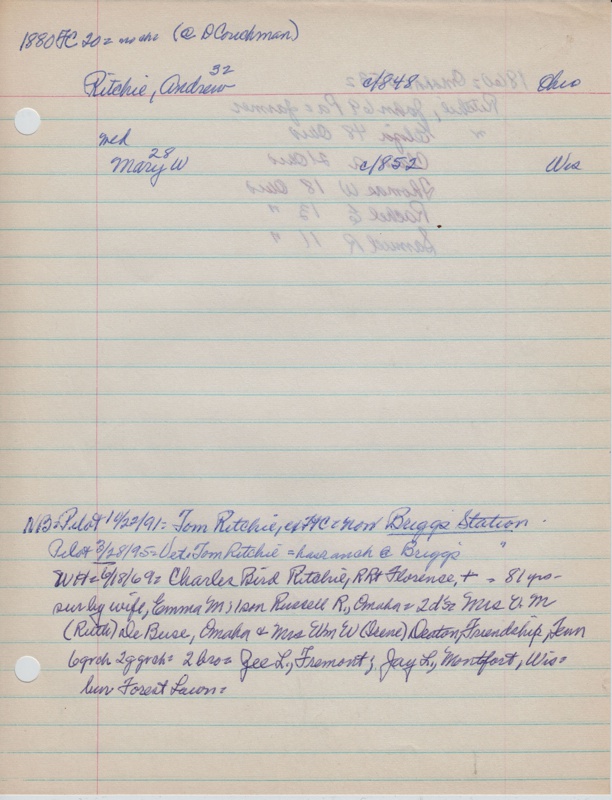 1880 FC 20= (@ D Couchman)
Ritchie, Andrew 32 c/1848 Ohio
med
Mary W 28 c/1852 Wis
NB= Pilot 10/22/91= Tom Ritchie, of = now Briggs Station.
Pilot 3/28/95= Vet= Tom Ritchie = has ranch @ Briggs "
WH= 6/18/69= Charles Bird Ritchie, RR# Florence, + = 81 yrs-
sur by wife, Emma M; 1 son Russell R., Omaha= 2 d's= Mrs V. M
(Ruth) De Buse, Omaha & Mrs Wm W (Irene) Deaton, Friendship, Tenn
6 grch 2 ggrch= 2 bro= Zee L., Fremont; Jay L., Montfort, Wis=
bur Forest Lawn=